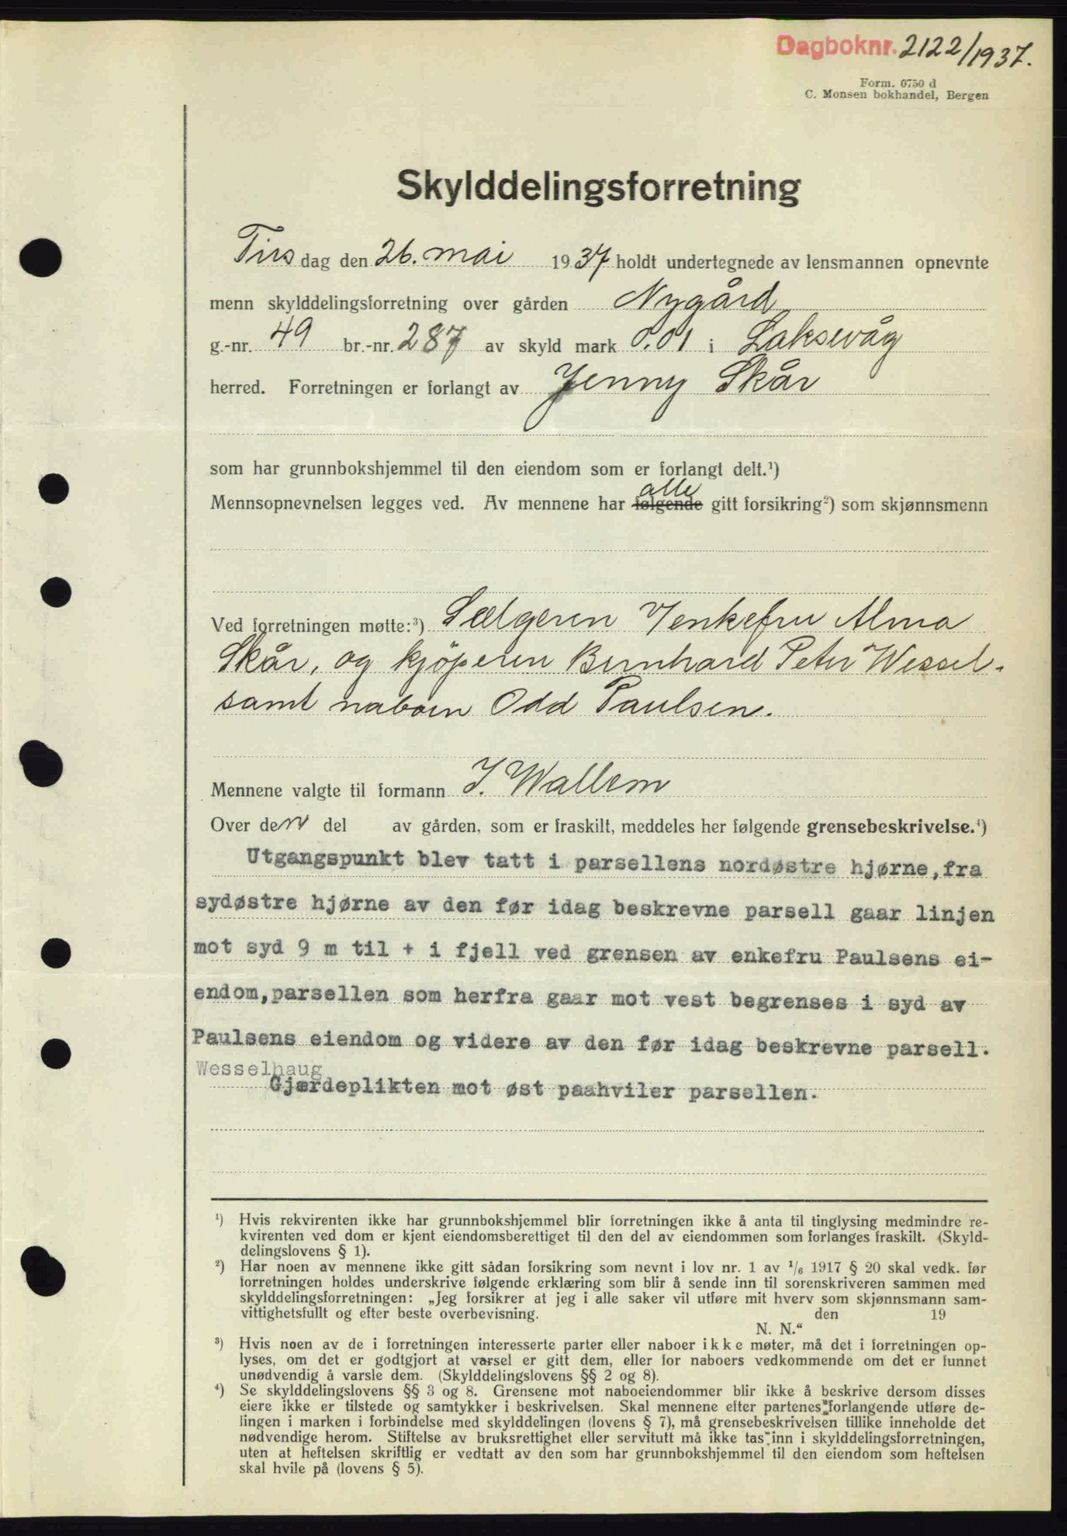 Dagboknr. 2122/1937.
Form. 0750 d
C. Monsen bokhandel, Bergen
Skylddelingsforretning
Tirsdag den 26. mai 1937 holdt undertegnede av lensmannen opnevnte
menn skylddelingsforretning over gården Nygård
g.-nr. 49 br.-nr. 287 av skyld mark 0.01 i Laksevåg
herred. Forretningen er forlangt av Jenny Skår
som har grunnbokshjemmel til den eiendom som er forlangt delt.¹)
alle
Mennsopnevnelsen legges ved. Av mennene har følgende gitt forsikring²) som skjønnsmenn
Ved forretningen møtte:³) Sælgeren Enkefru Alma
Skår, og kjöperen Bernhard Peter Wessel
samt naboen Odd Paulsen.
Mennene valgte til formann I. Wallem
Over den del av gården, som er fraskilt, meddeles her følgende grensebeskrivelse.⁴)
Utgangspunkt blev tatt i parsellens nordøstre hjørne,fra
sydøstre hjørne av den før idag beskrevne parsell gaar linjen
mot syd 9 m til + i fjell ved grensen av enkefru Paulsens ei-
endom,parsellen som herfra gaar mot vest begrenses i syd av
Paulsens eiendom og videre av den før idag beskrevne parsell.
Wesselhaug
Gjærdeplikten mot øst paahviler parsellen.
¹) Hvis rekvirenten ikke har grunnbokshjemmel blir forretningen ikke å anta til tinglysing medmindre re-
kvirenten ved dom er kjent eiendomsberettiget til den del av eiendommen som forlanges fraskilt. (Skyld-
delingslovens § 1).
²) Har noen av mennene ikke gitt sådan forsikring som nevnt i lov nr. 1 av 1/6 1917 § 20 skal vedk. før
forretningen holdes underskrive følgende erklæring som blir å sende inn til sorenskriveren sammen med
skylddelingsforretningen: „Jeg forsikrer at jeg i alle saker vil utføre mit hverv som skjønnsmann sam-
vittighetsfullt og efter beste overbevisning. den 19
N. N.“
³) Hvis noen av de i forretningen interesserte parter eller naboer ikke møter, må det i forretningen op-
lyses, om det er godtgjort at varsel er gitt dem, eller for naboers vedkommende om det er funnet
unødvendig å varsle dem. (Skylddelingslovens §§ 2 og 8).
⁴) Se skylddelingslovens §§ 3 og 8. Grensene mot naboeiendommer blir ikke å beskrive dersom disses
eiere ikke er tilstede og samtykker i beskrivelsen. Skal mennene efter partenes forlangende utføre de-
lingen i marken i forbindelse med skylddelingen (lovens § 7), må grensebeskrivelsen tillike inneholde det
nødvendige herom. Stiftelse av bruksrettighet eller servitutt må ikke tas inn i skylddelingsforretningen,
uten at heftelsen skriftlig er vedtatt av den som har grunnbokshjemmel til den eiendom som heftelsen
skal hvile på (lovens § 5).